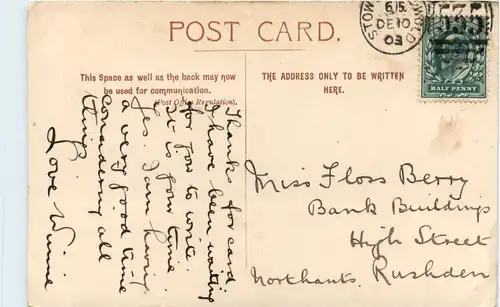 POST CARD.
This Space as well as the back may now
be used for communication.
(Post Office Regulation).
THE ADDRESS ONLY TO BE WRITTEN
HERE.
STOW
WOLD
6 15
DE 10
03
HALF PENNY
Thanks for card
I have been waiting
for you to write.
It is your time.
Yes. I am having
a very good time
considering all
things
Love Winnie
Miss Floss Berry
Bank Buildings
High Street
Northants. Rushden